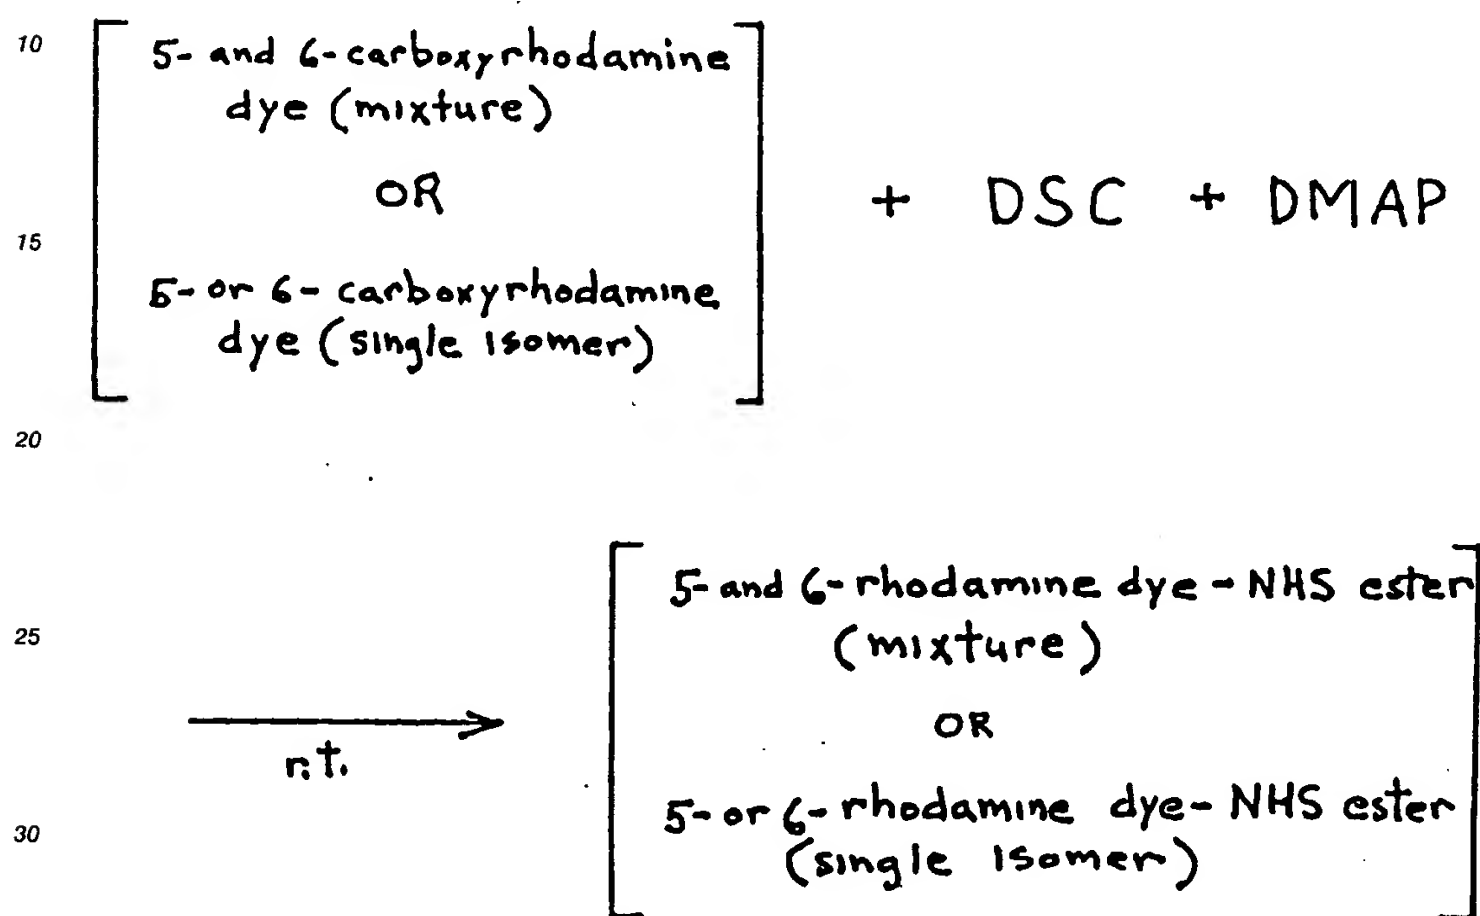 10
5- and 6-carboxyrhodamine
dye (mixture)
OR
15
5- or 6- carboxyrhodamine
dye (single isomer)
+ DSC + DMAP
20
25
r.t.
5- and 6- rhodamine dye - NHS ester
(mixture)
OR
30
5- or 6- rhodamine dye - NHS ester
(single isomer)